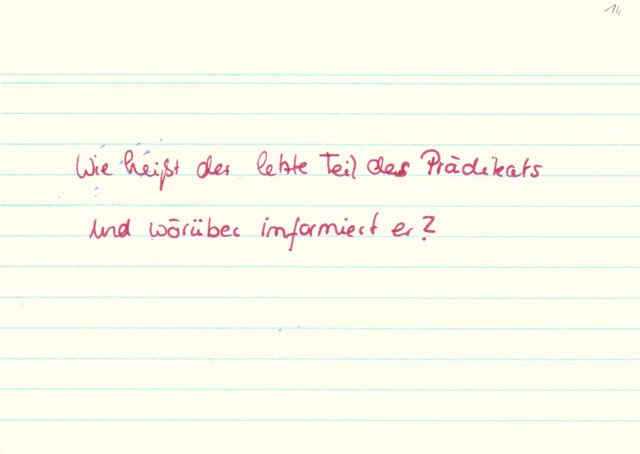 14
Wie heißt der letzte Teil des Prädikats
und worüber informiert er?